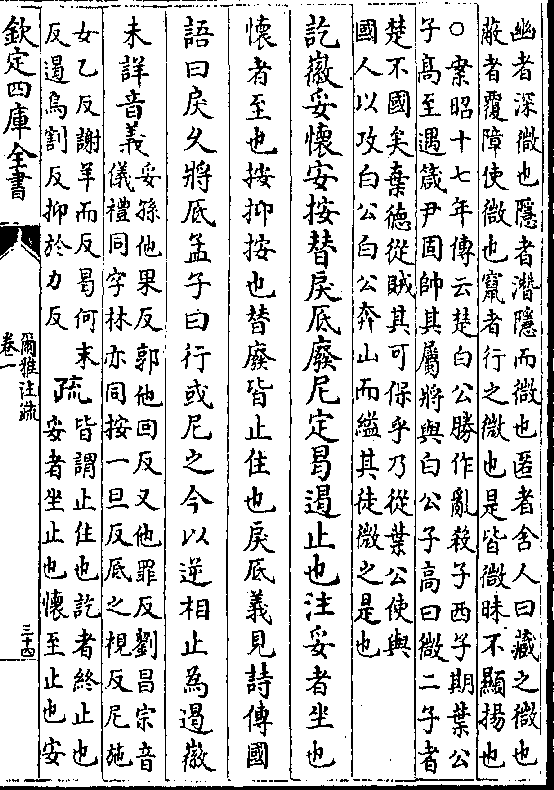 幽者深微也隱者潛隱而微也匿者舍人曰藏之微也
蔽者覆障使微也竄者行之微也是皆微昧不顯揚也
○案昭十七年傳云楚白公勝作亂殺子西子期葉公
子高至遇箴尹固帥其屬將與白公子高曰微二子者
楚不國矣棄德從賊其可保乎乃從葉公使與
國人以攻白公白公奔山而縊其徒微之是也
訖徽妥懷安按替戾厎廢尼定曷遏止也注妥者坐也
懷者至也按抑按也替廢皆止住也戾厎義見詩傳國
語曰戾久將厎孟子曰行或尼之今以逆相止為遏徽
未詳音義妥孫他果反郭他回反又他罪反劉昌宗音
儀禮同字林亦同按一旦反厎之視反尼施
女乙反謝羊而反曷何末
反遏烏割反抑於力反
疏皆謂止住也訖者終止也
安者坐止也懷至止也安
欽定四庫全書
爾雅注疏
卷一
三十四